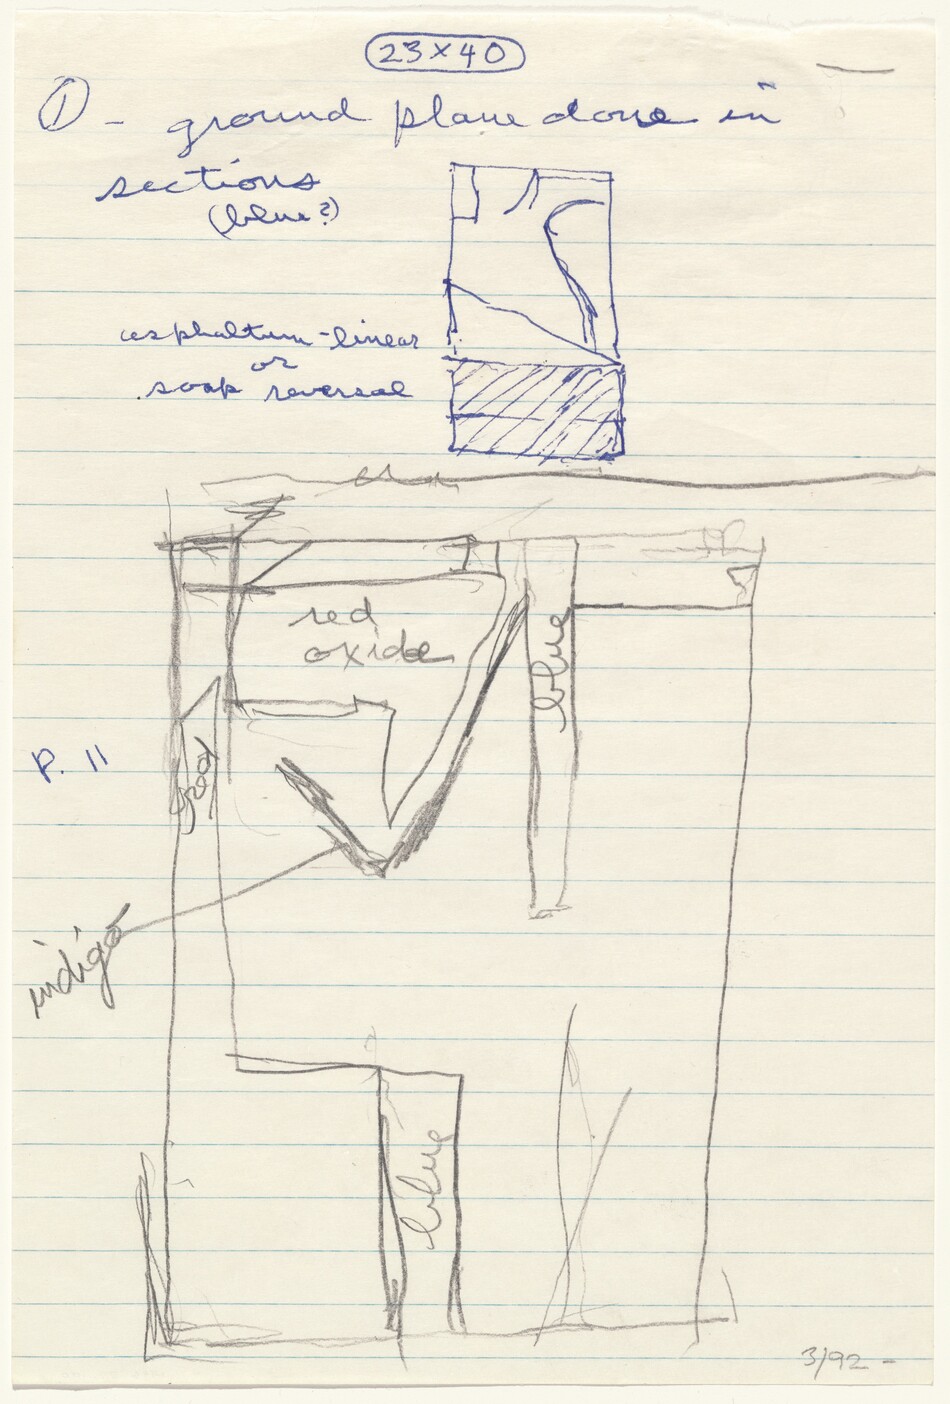 23 x 40
① - ground plane done in
sections
(blue?)
asphaltum-linear
or
soap reversal
red
oxide
blue
P. 11
indigo
blue
3/92 -